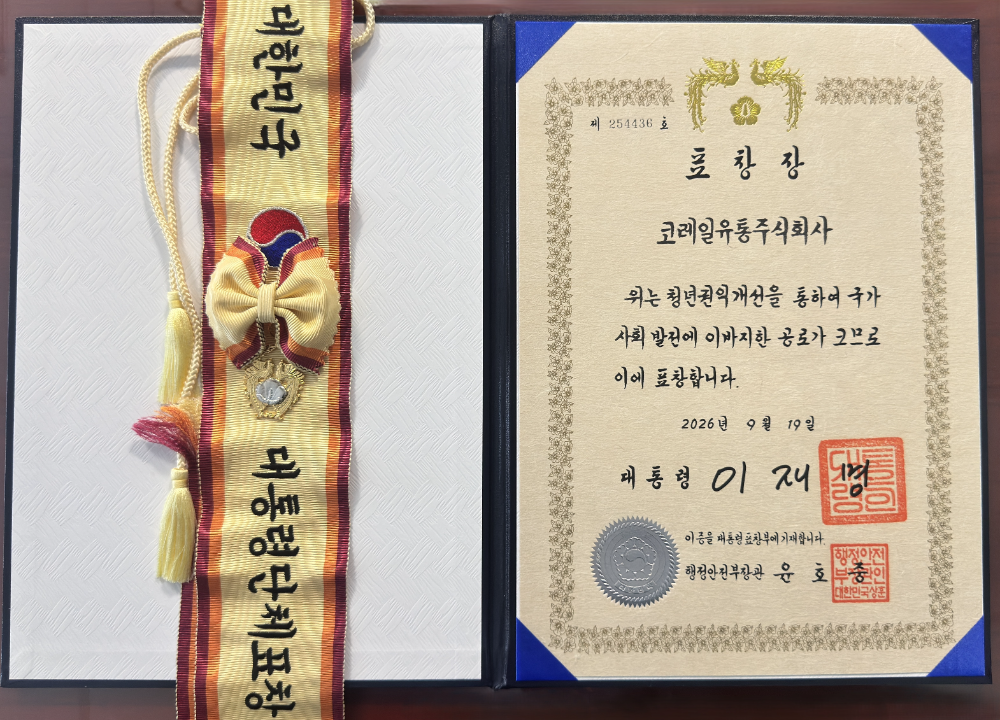 대한민국
대통령단체표창
제 254436 호
표창장
코레일유통주식회사
위는 청년권익개선을 통하여 국가
사회 발전에 이바지한 공로가 크므로
이에 표창합니다.
2026년 9월 19일
대통령 이재명
이 증을 대통령표창부에 기재합니다.
행정안전부장관 윤호중
행정안전
부장관인
대한민국상훈